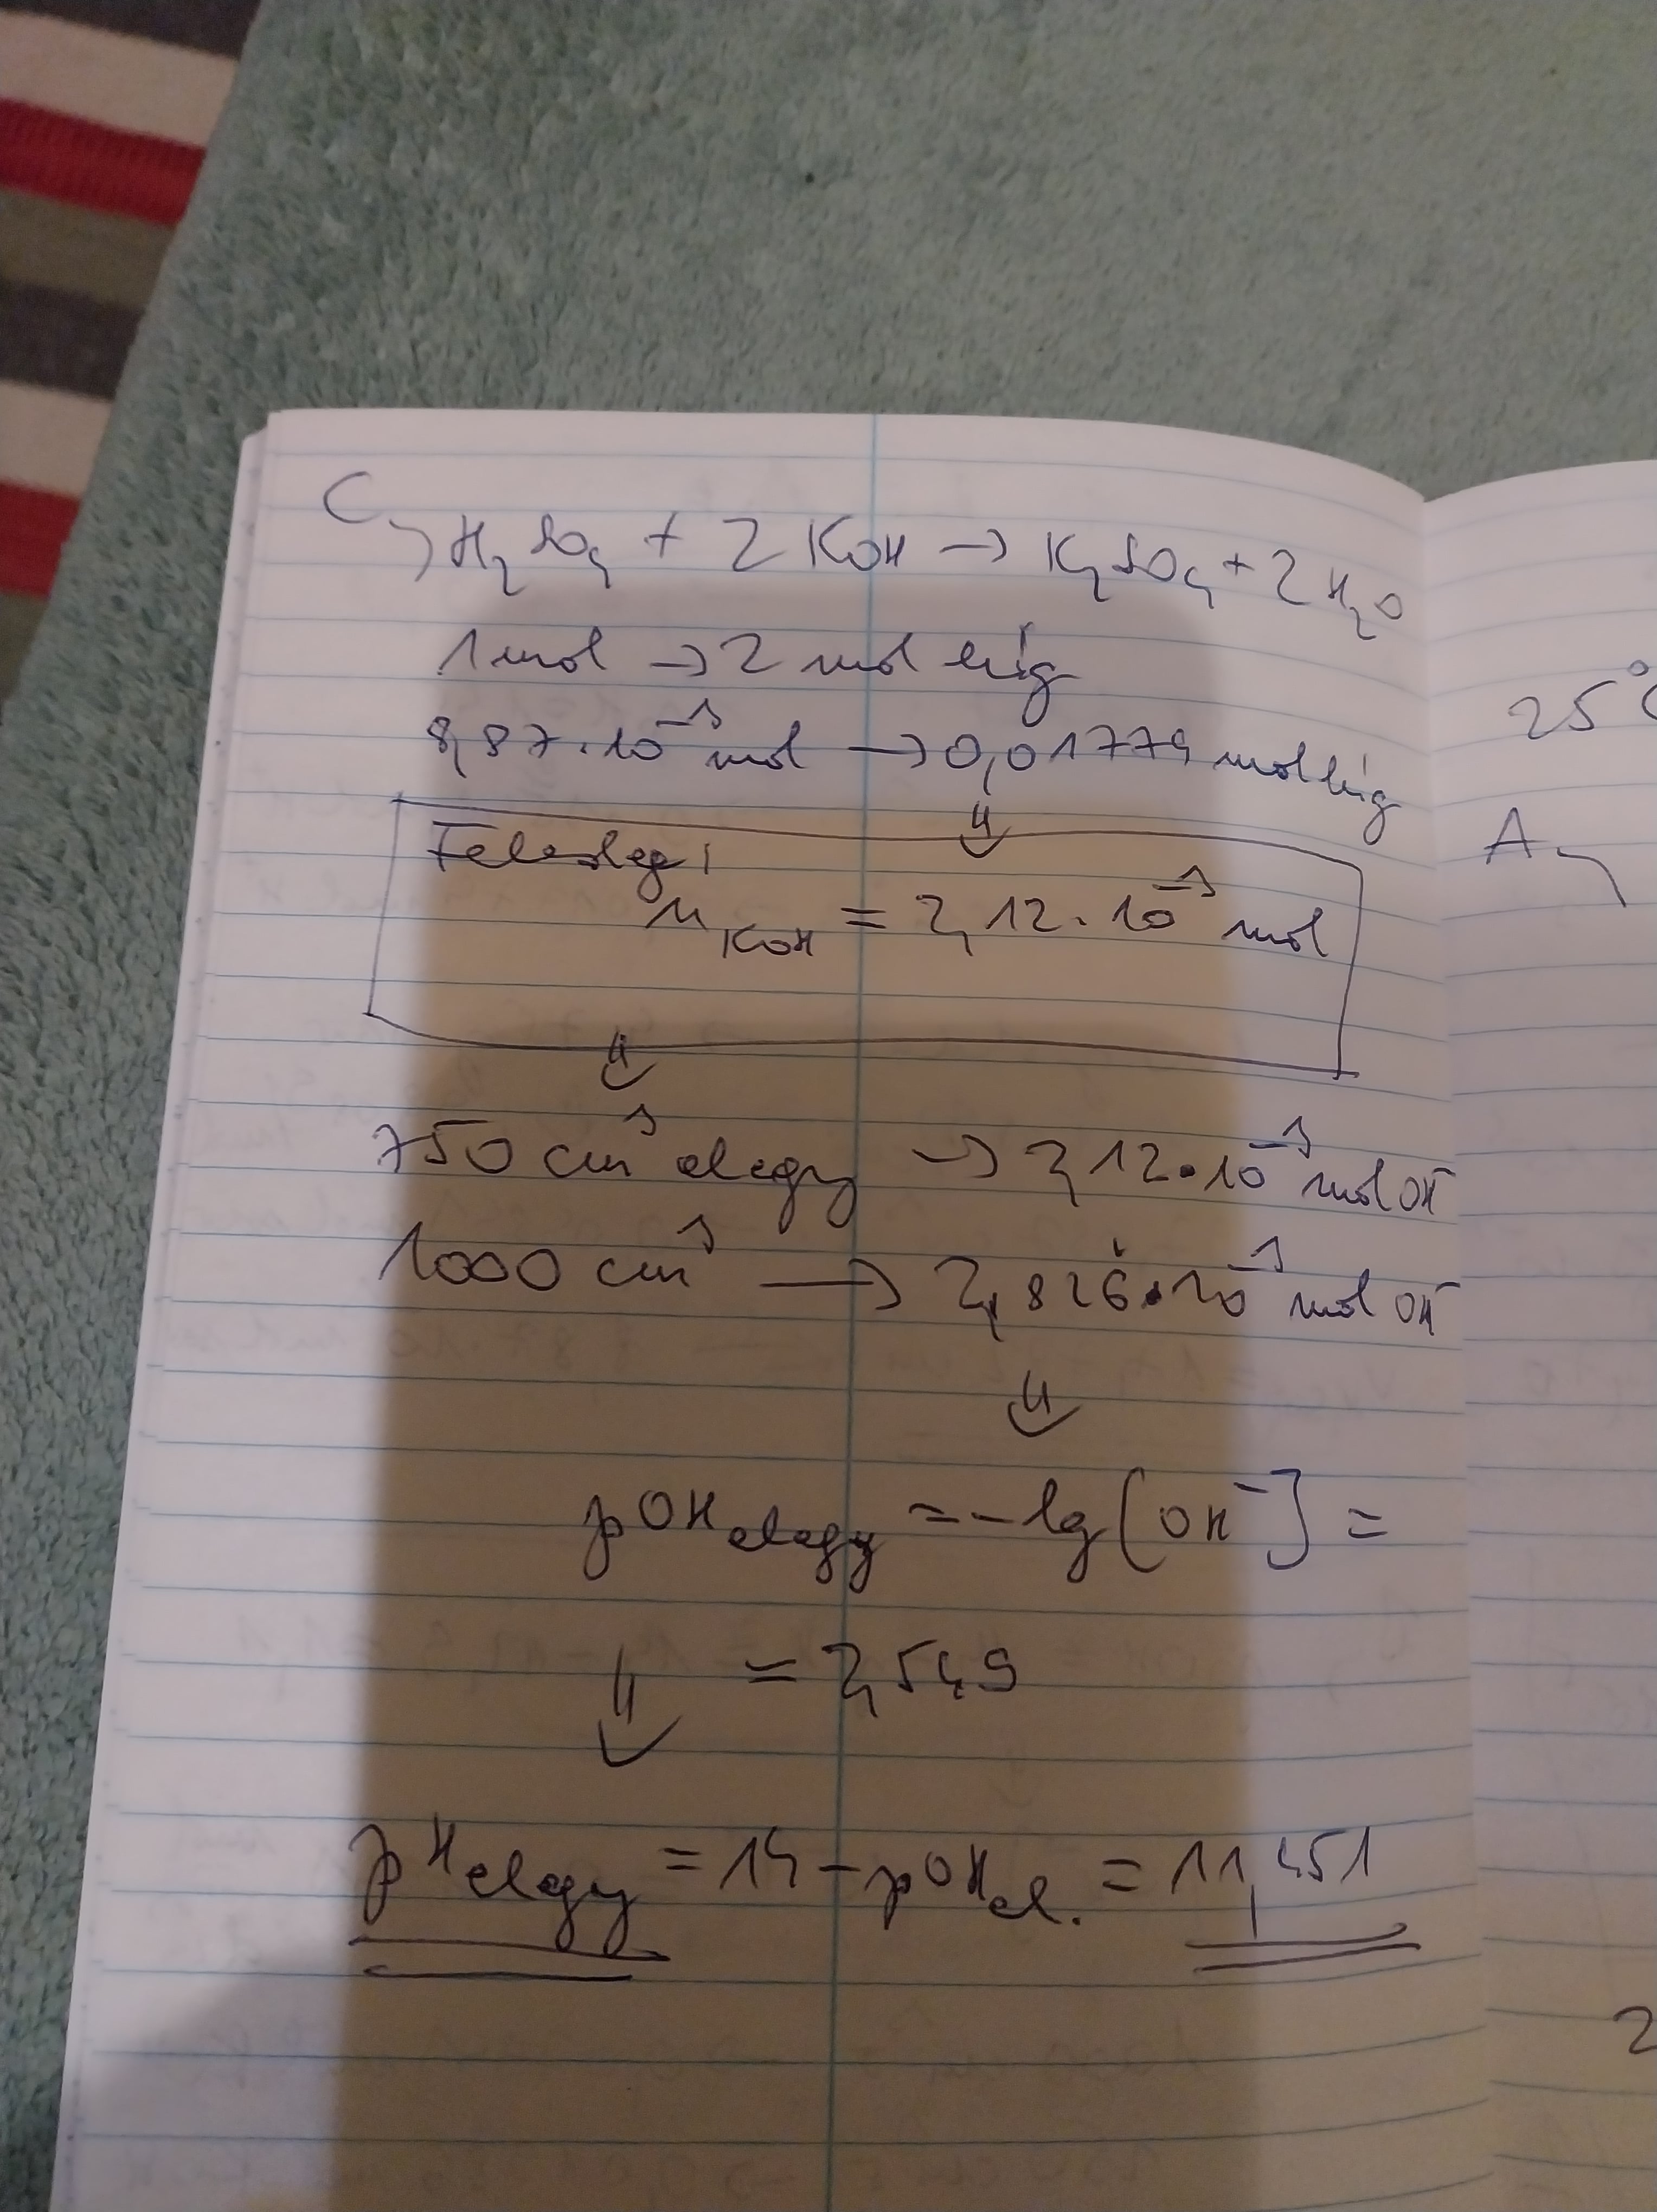 C, H₂SO₄ + 2 KOH → K₂SO₄ + 2 H₂O
1 mol → 2 mol lúg
8,87·10⁻³ mol → 0,01774 mol lúg
⇓
Felesleg:
n KOH = 2,12·10⁻³ mol
⇓
750 cm³ elegy → 2,12·10⁻³ mol OH⁻
1000 cm³ → 2,826̇·10⁻³ mol OH⁻
⇓
pOH elegy = -lg[OH⁻] =
⇓ = 2,549
pH elegy = 14 - pOH el. = 11,451
25°C
A,
2